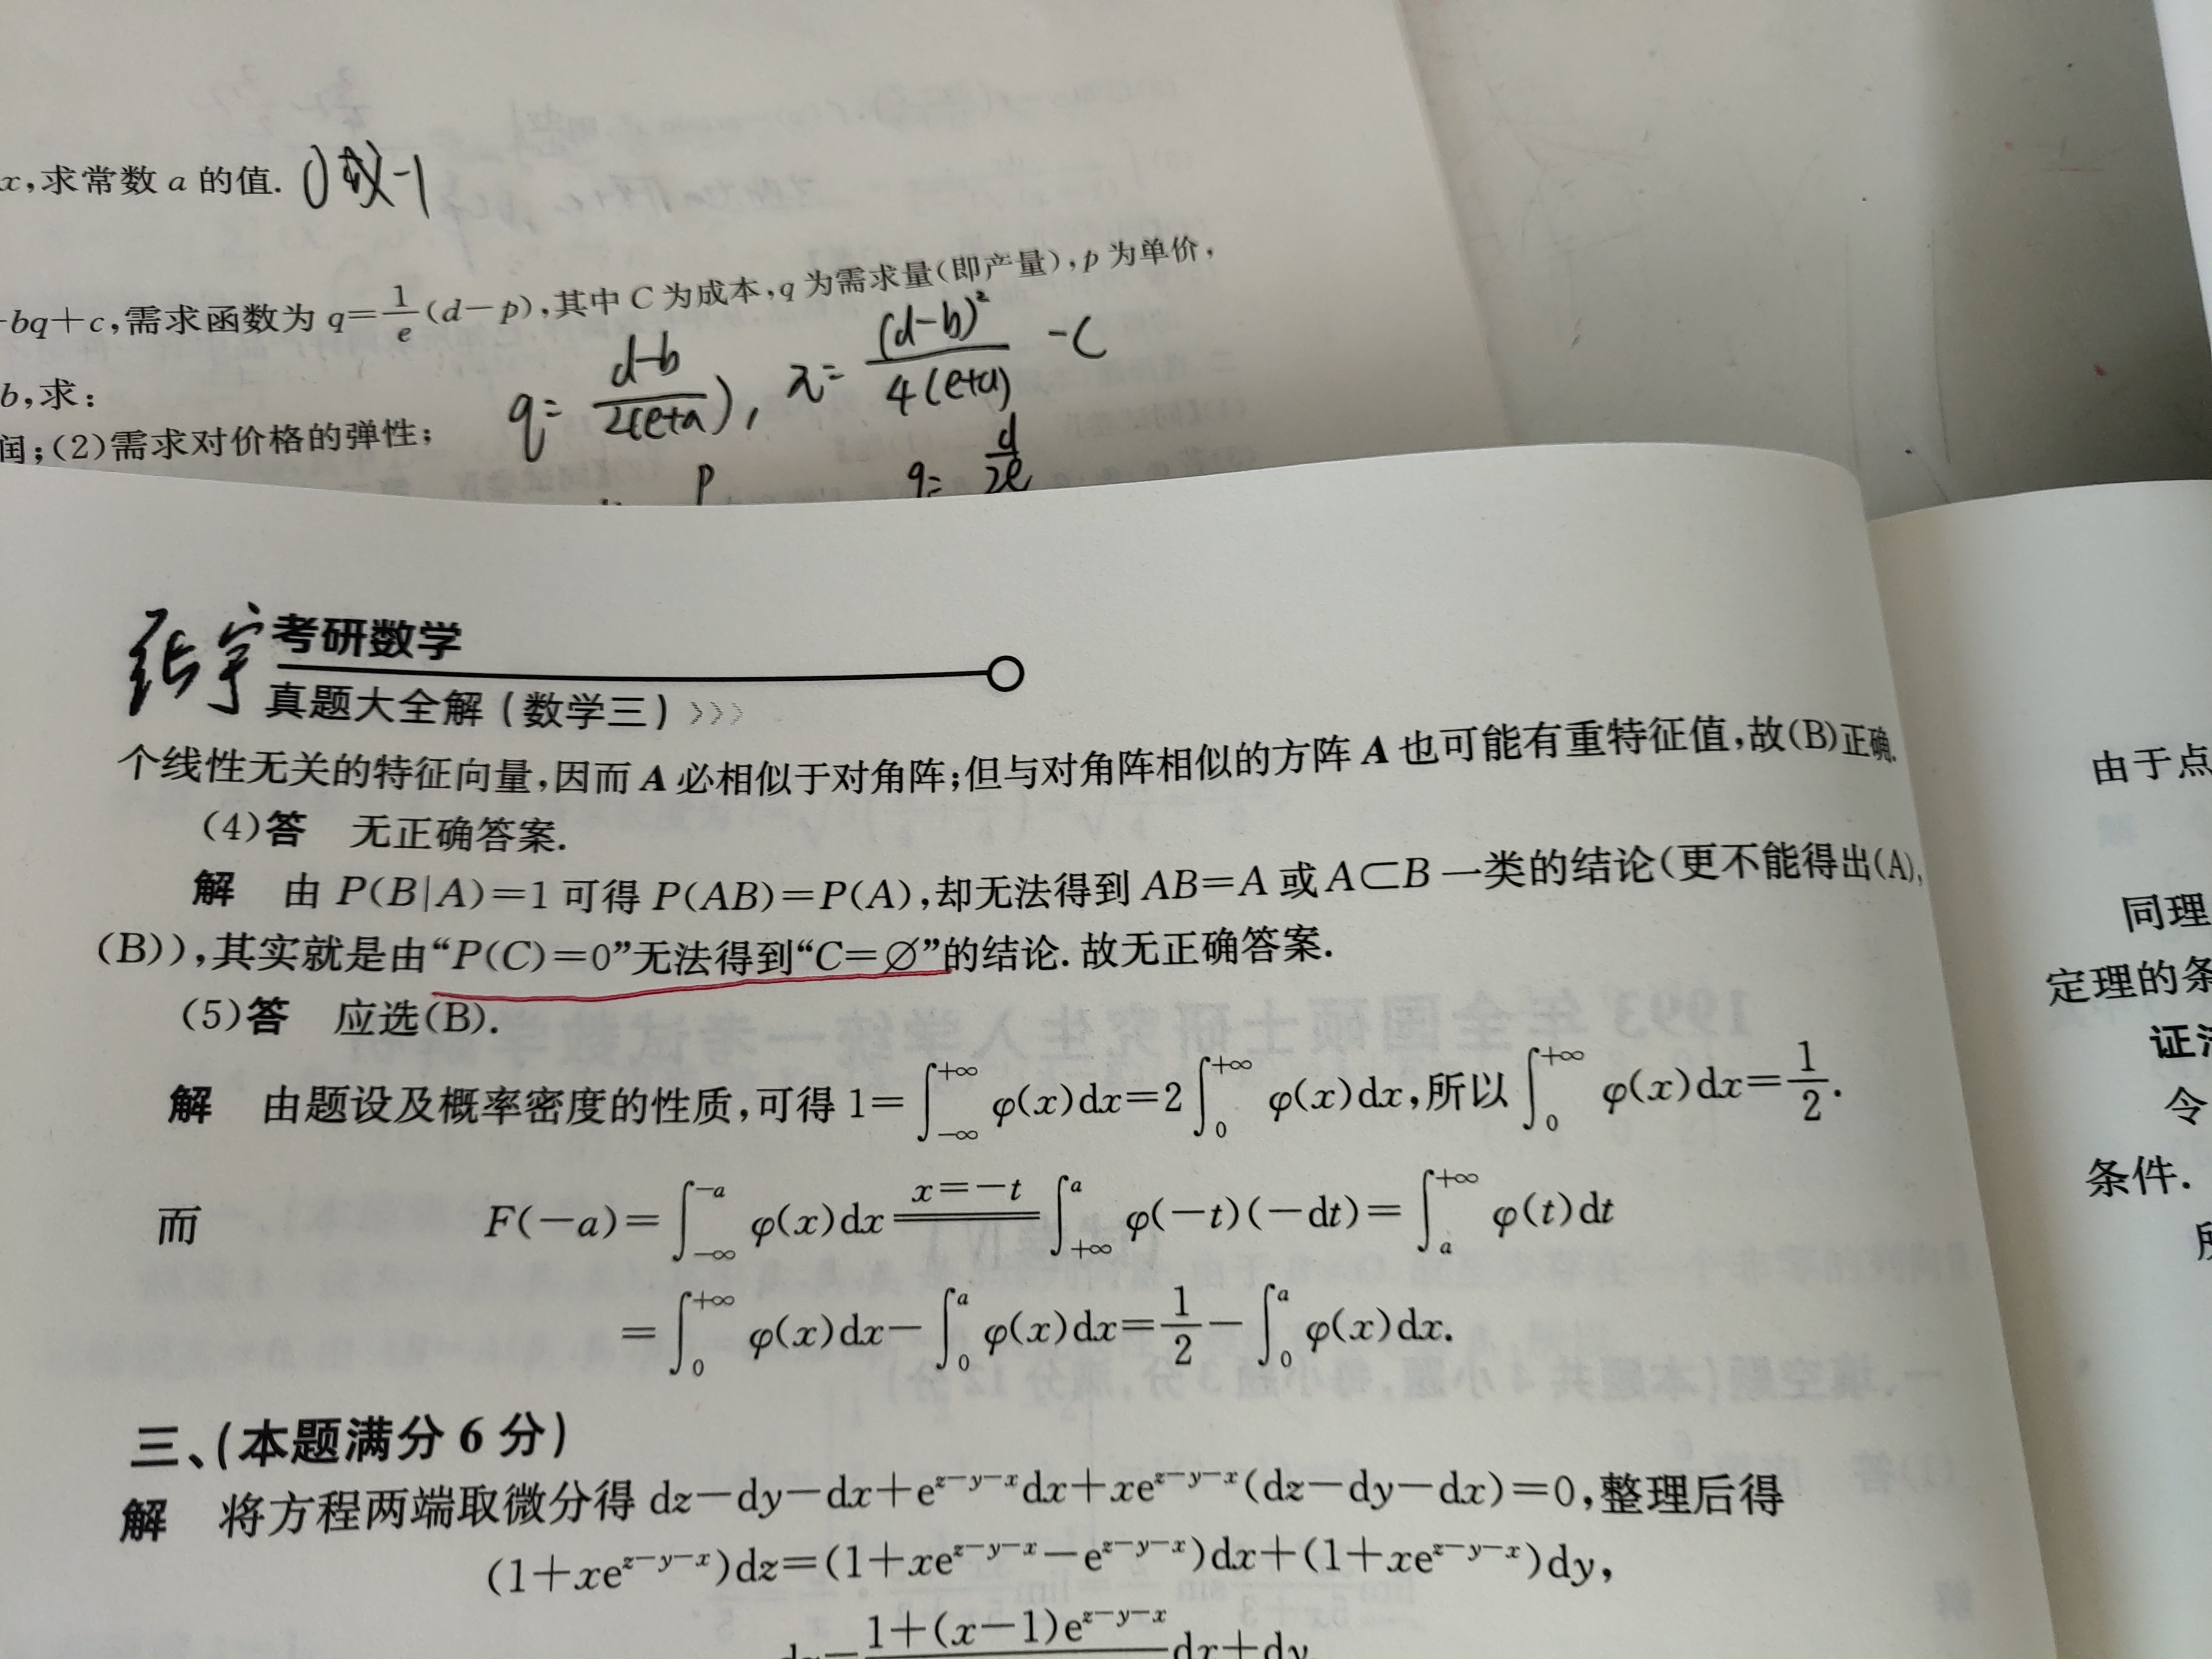 x,求常数 a 的值. 0或-1
-bq+c,需求函数为 q=\frac{1}{e}(d-p),其中 C 为成本,q 为需求量(即产量),p 为单价,
q=\frac{d-b}{2(e+a)}, π=\frac{(d-b)^2}{4(e+a)}-C
b,求:
润;(2)需求对价格的弹性;
p q=\frac{d}{2e}
张宇 考研数学
真题大全解(数学三)>>>
个线性无关的特征向量,因而 A 必相似于对角阵;但与对角阵相似的方阵 A 也可能有重特征值,故(B)正确.
(4)答 无正确答案.
解 由 P(B|A)=1 可得 P(AB)=P(A),却无法得到 AB=A 或 A⊂B 一类的结论(更不能得出(A),
(B)),其实就是由“P(C)=0”无法得到“C=∅”的结论. 故无正确答案.
(5)答 应选(B).
解 由题设及概率密度的性质,可得 1=∫_{-∞}^{+∞} φ(x)dx=2∫_{0}^{+∞} φ(x)dx,所以∫_{0}^{+∞} φ(x)dx=\frac{1}{2}.
而 F(-a)=∫_{-∞}^{-a} φ(x)dx \xlongequal{x=-t} ∫_{+∞}^{a} φ(-t)(-dt)=∫_{a}^{+∞} φ(t)dt
=∫_{0}^{+∞} φ(x)dx-∫_{0}^{a} φ(x)dx=\frac{1}{2}-∫_{0}^{a} φ(x)dx.
三、(本题满分 6 分)
解 将方程两端取微分得 dz-dy-dx+e^{z-y-x}dx+xe^{z-y-x}(dz-dy-dx)=0,整理后得
(1+xe^{z-y-x})dz=(1+xe^{z-y-x}-e^{z-y-x})dx+(1+xe^{z-y-x})dy,
\frac{1+(x-1)e^{z-y-x}}{}dx+dy
由于点
同理
定理的条
证
令
条件.